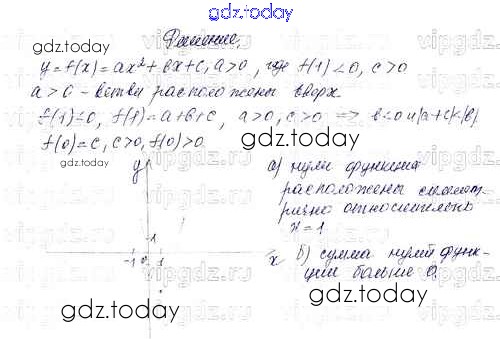 gdz.today
Решение.
gdz.today
y=f(x)=ax²+bx+c, a>0, где f(1)<0, c>0
a>0 - ветви расположены вверх
f(1)<0, f(1)=a+b+c, a>0, c>0 => b<0 и |a+c|<|b|
f(0)=c, c>0, f(0)>0
gdz.today
gdz.today
y
а) нули функции
расположены симмет-
рично относительно
x=1
1
-1 0 1 x
б) сумма нулей функ-
ции больше 0.
gdz.today
gdz.today
gdz.today